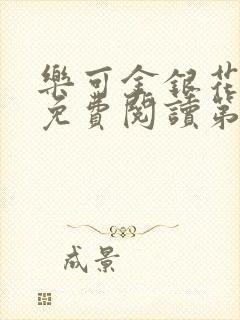 樂可金銀花
免費閱讀第
成景